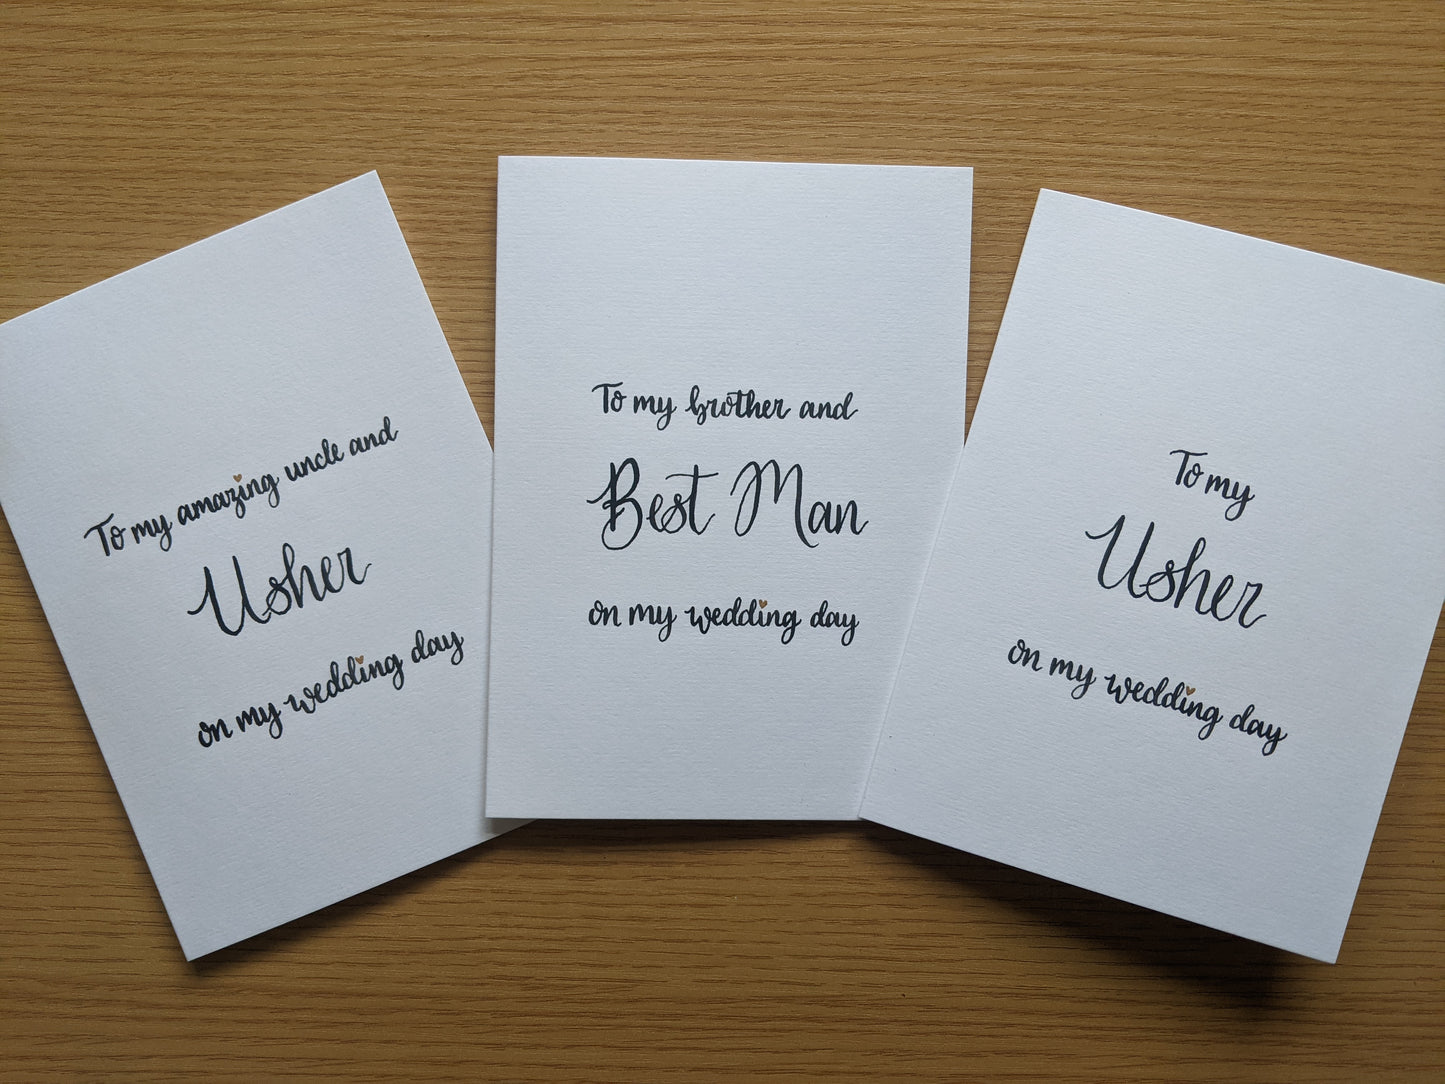 To my amazing uncle and
Usher
on my wedding day
To my brother and
Best Man
on my wedding day
To my
Usher
on my wedding day